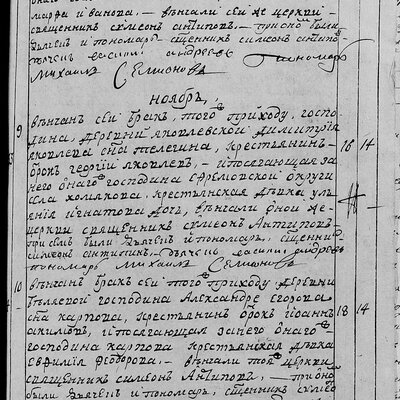 марфа ивановa. — вѣнчали сеи же церкви
священникъ симеонъ антиповъ. — при семъ были
дьячекъ и пономарь. священникъ симеонъ антип
дьячекъ василий андреевъ пономарь
михаилъ Семионовъ
ноябрь,
9 вѣнчанъ сеи бракъ, того приходу, госпо-
дина, деревни яковлевской димитрия
яковлева сна телегина, крестьянинъ — 18 14
отрокъ георгий яковлевъ, — и посягающая за
него онаго господина ефремовской округи
села холмякова. крестьянская дѣвка уль
яния игнатова дочь, вѣнчали оной це-
церкви священникъ симеонъ Антиповъ —
при семъ были дьячекъ и пономарь, священни-
симеонъ антипинъ. — дьячекъ василий андреевъ
пономарь михаилъ Семионовъ
10 вѣнчанъ бракъ сеи того приходу деревни
господина александра егорова
сна карпова, крестьянинъ отрокъ иоаннъ 18 14
акимовъ, и посягающая занего онаго
господина карпова крестьянская дѣвка
евфимия федорова. — вѣнчали тоя церкви
священникъ симеонъ Антиповъ, — при семъ
были дьячекъ и пономарь, священникъ симео